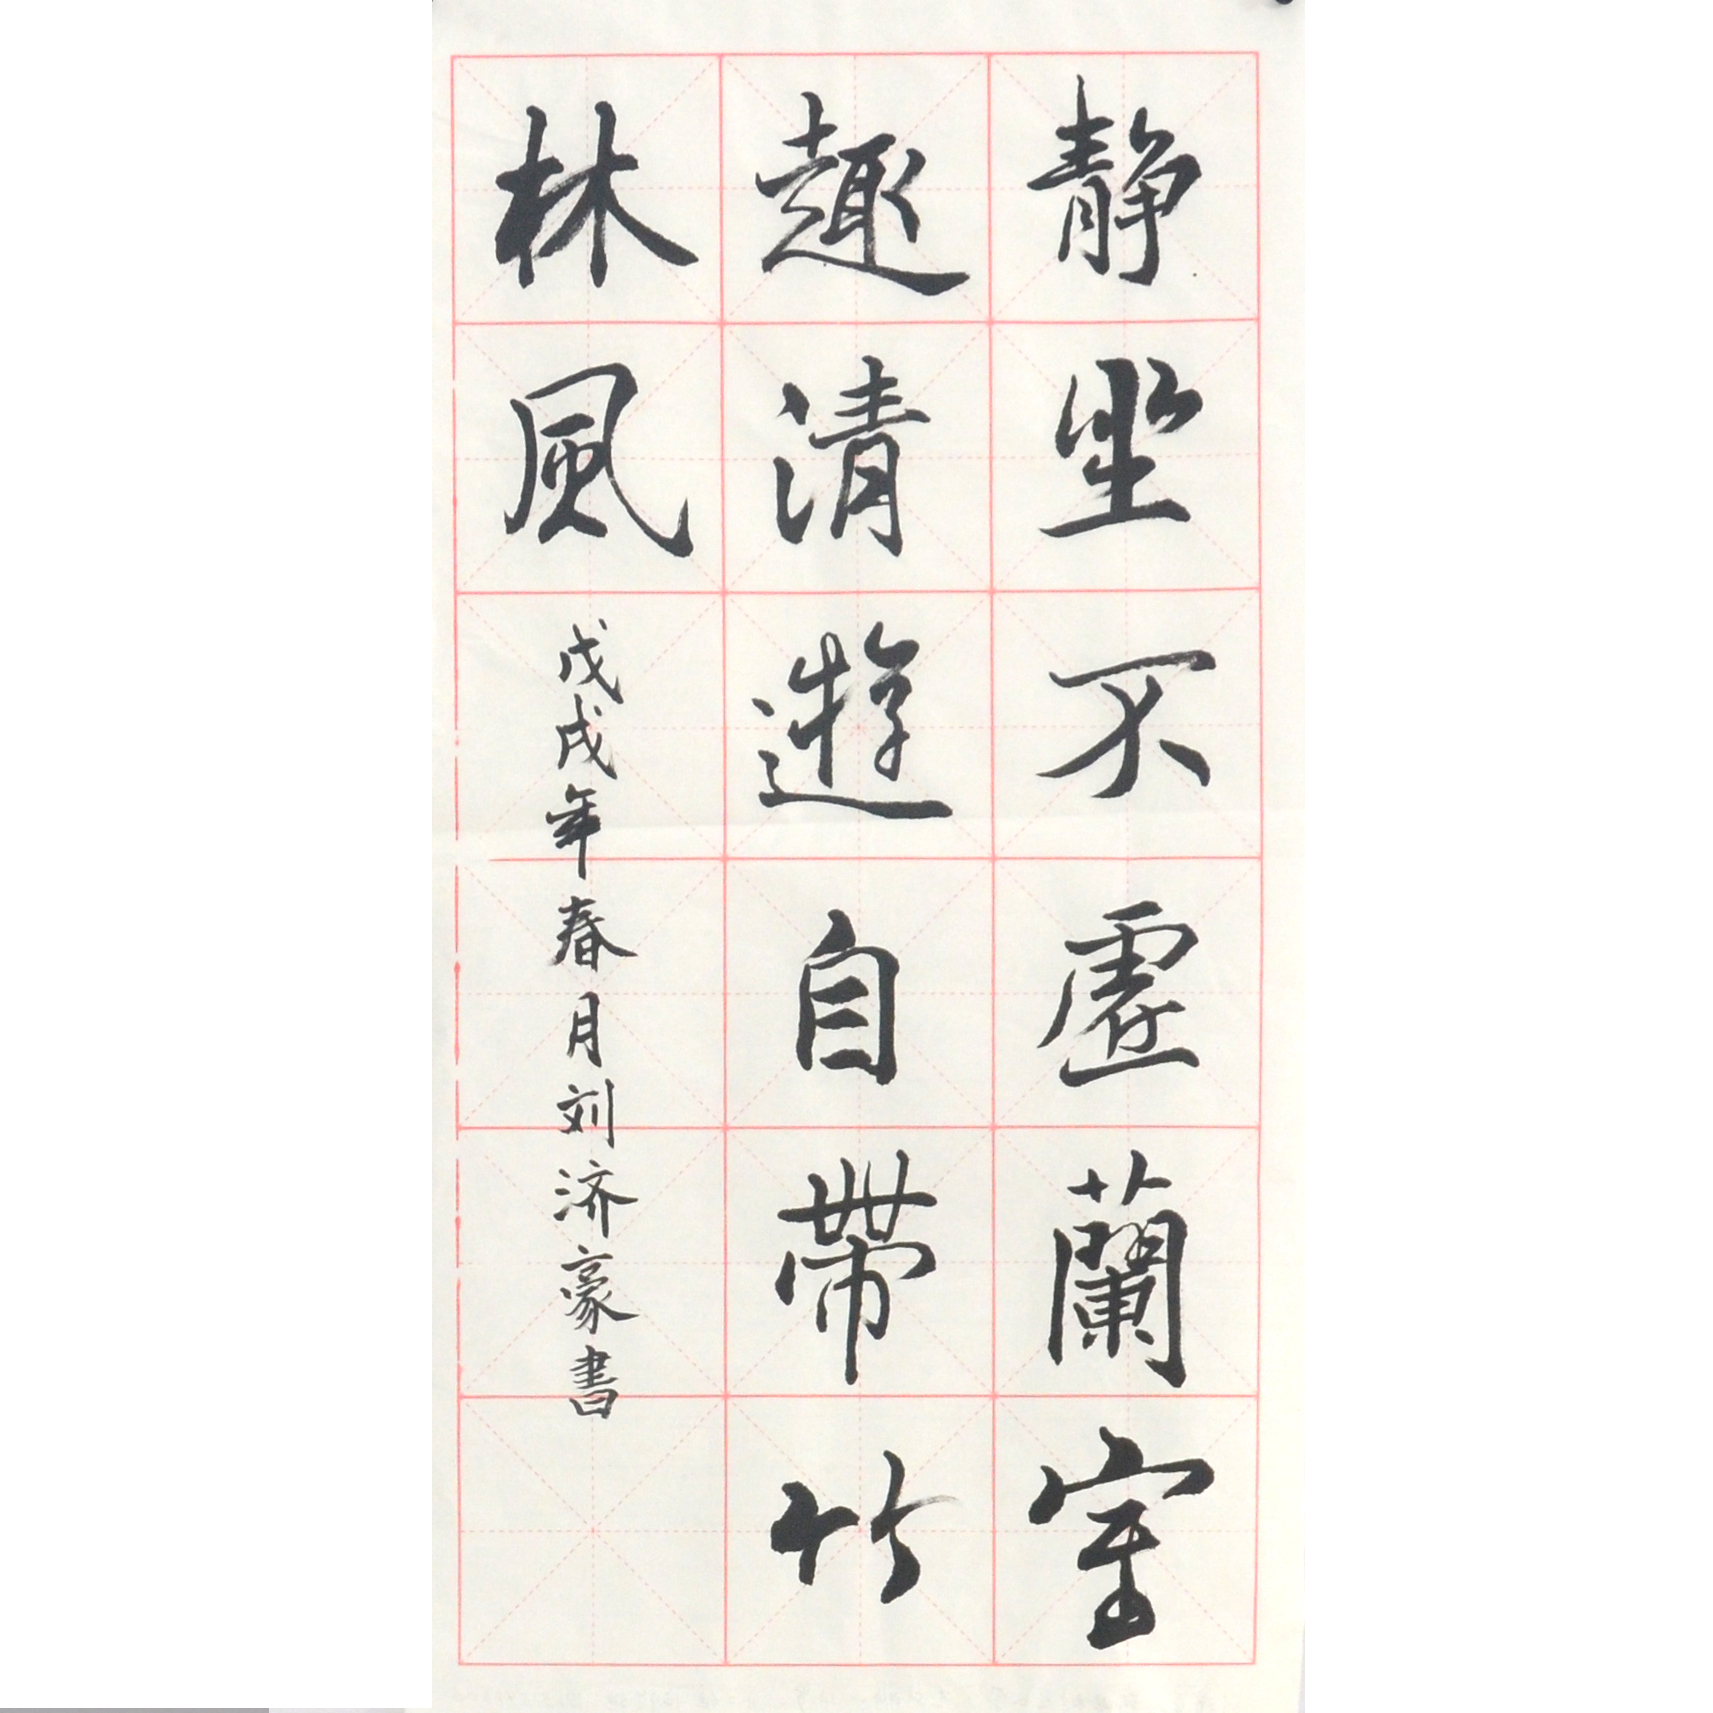 静坐不虚蘭室
趣清遊自帶竹
林風
戊戌年春月刘济豪書